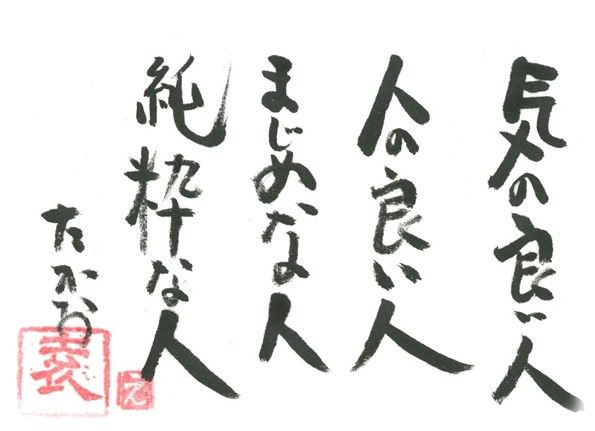 気の良い人
人の良い人
まじめな人
純粋な人
たかお
え